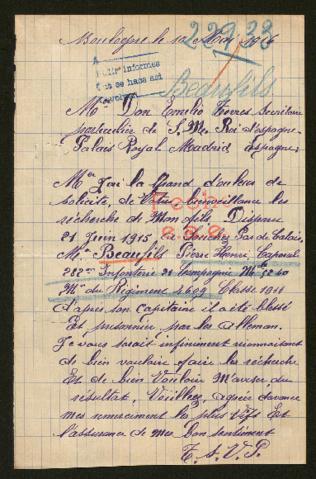 Boulogne le 10 Mai 1916
229.32
A
Pedir informes
que se haga así
Beaufils
Mr Don Emilio Torres Secritaire
particulier de S. M. Roi d'espagne
Palais Royal Madrid Espagne
Mr J'ai la Grand douleur de
solicité, de Votre bienveillance les
recherche de Mon fils Disparu
21 Juin 1915 a Souchez Pas de Calais
Mr Beaufils Pierre Henri, Caporal
282e Infanterie 21 Compagnie
Mle du Régiment 4609 Classe 1911
d'apres son capitaine il a été blessé
Et prisonnier par les Alleman.
Je vous serait infiniment reconnaissant
de bien vouloir faire les recherche
Et de bien Vouloir M'averse du
résultat. Veillez agréer d'avance
mes remerciment les plus Vifs Et
l'assurance de mes bon sentiment
T. S. V. P.